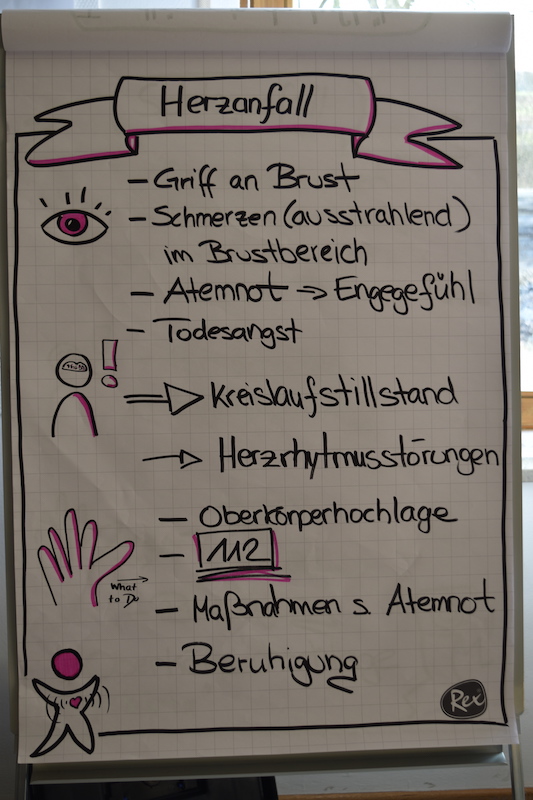 Herzanfall
- Griff an Brust
- Schmerzen (ausstrahlend)
im Brustbereich
- Atemnot => Engegefühl
- Todesangst
!
=> Kreislaufstillstand
-> Herzrhytmusstörungen
- Oberkörperhochlage
- 112
What
to Do
- Maßnahmen s. Atemnot
- Beruhigung
Rex